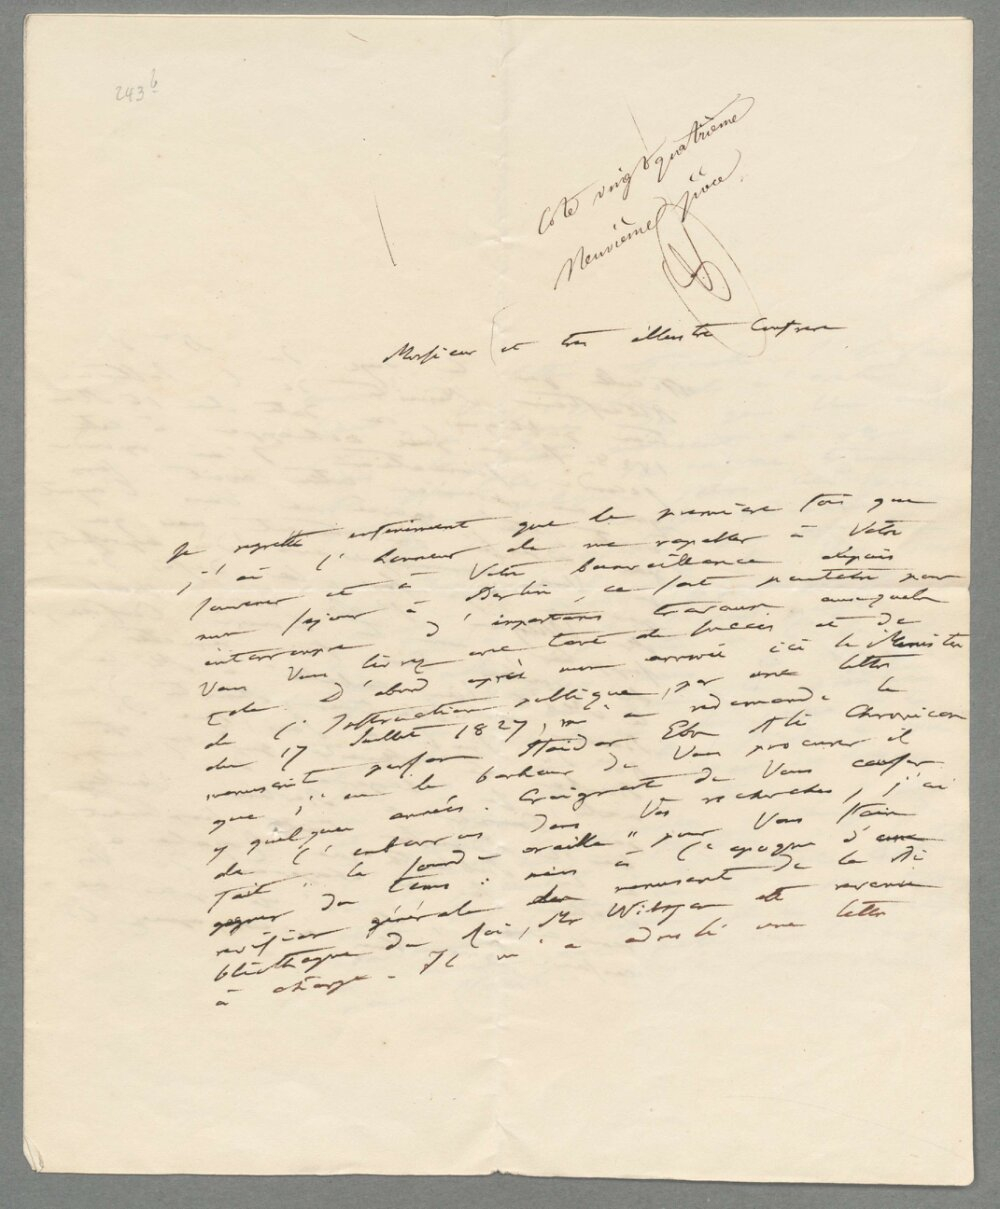 243 b
Cote vingt quatrième
Neuvième pièce
Monsieur et très illustre Confrere
Je regrette infiniment que la première fois que
j'ai l'honneur de me rapeller à Votre
souvenir et à Votre bienveillance depuis
mon sejour à Berlin, ce soit peutetre pour
interrompre d'importans travaux auxquels
Vous Vous livrez avec tant de succès et de
zele. D'abord après mon arrivée ici le Ministre
de l'Instruction publique, par une lettre
du 17 Juillet 1827, m'a redemandé le
manuscrit persan Haidar Ebn Ali Chronicon
que j'ai eu le bonheur de Vous procurer il
y quelques années. Craignant de Vous causer
de l'embarras dans Vos recherches, j'ai
fait "la sourde oreille" pour Vous faire
gagner du tems: mais à l'epoque d'une
revision générale des manuscrit de la Bi
bliotheque du Roi, Mr Wilken est revenu
à charge. Il m'a adressé une lettre